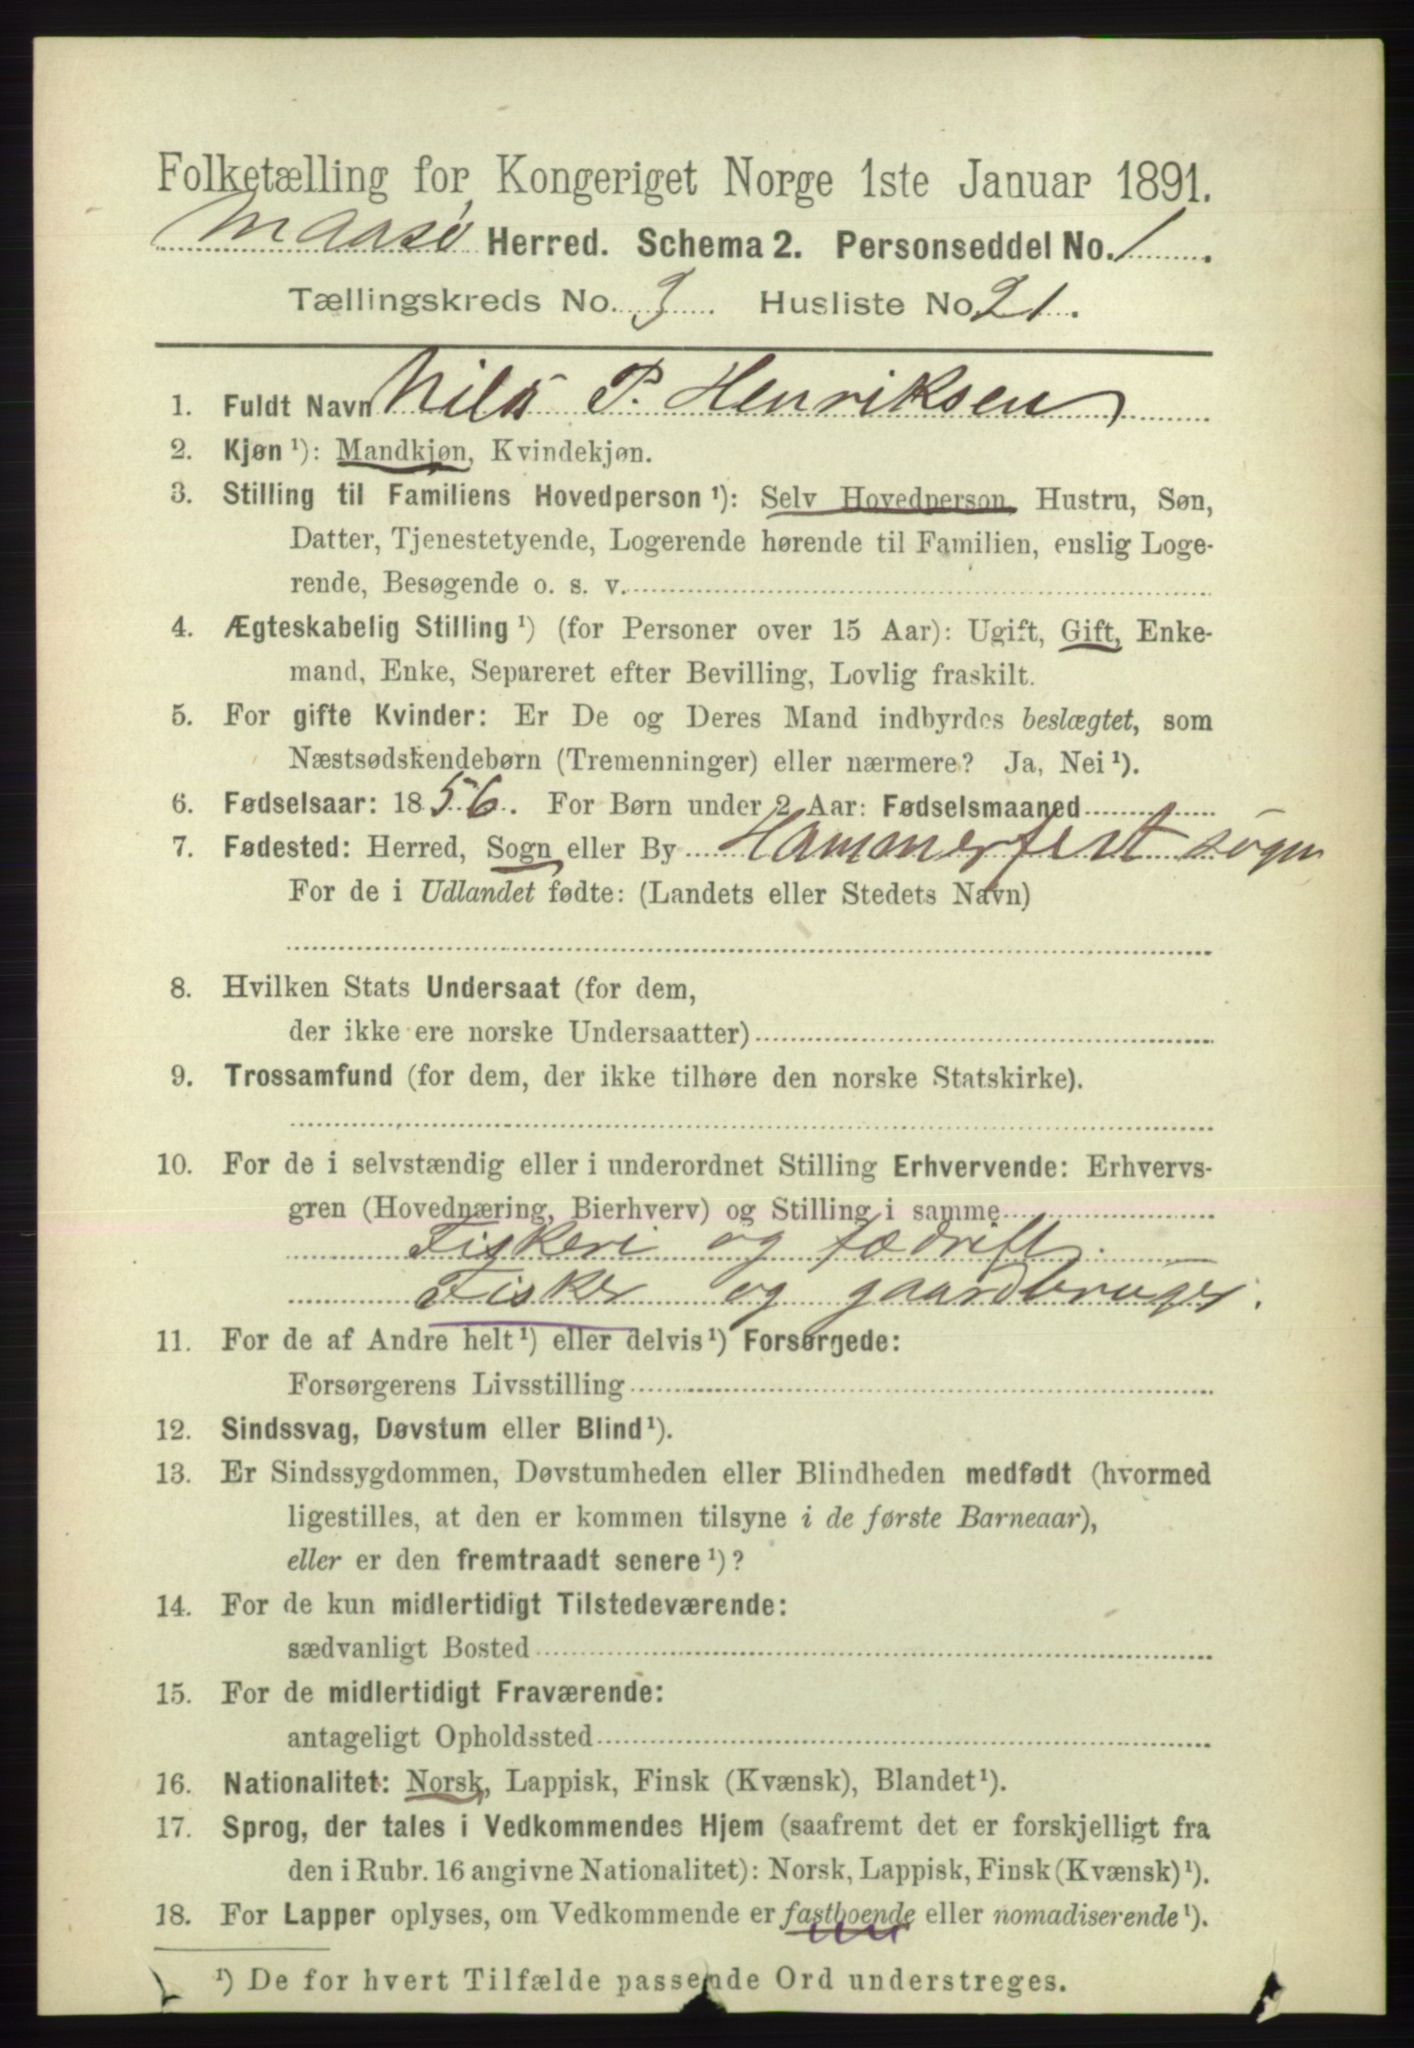 Folketælling for Kongeriget Norge 1ste Januar 1891.
Maasø Herred. Schema 2. Personseddel No. 1.
Tællingskreds No. 3. Husliste No. 21.
1. Fuldt Navn Nils P. Henriksen
2. Kjøn ¹): Mandkjøn, Kvindekjøn.
3. Stilling til Familiens Hovedperson ¹): Selv Hovedperson, Hustru, Søn,
Datter, Tjenestetyende, Logerende hørende til Familien, enslig Loge-
rende, Besøgende o. s. v.
4. Ægteskabelig Stilling ¹) (for Personer over 15 Aar): Ugift, Gift, Enke-
mand, Enke, Separeret efter Bevilling, Lovlig fraskilt.
5. For gifte Kvinder: Er De og Deres Mand indbyrdes beslægtet, som
Næstsødskendebørn (Tremenninger) eller nærmere? Ja, Nei ¹).
6. Fødselsaar: 1856. For Børn under 2 Aar: Fødselsmaaned
7. Fødested: Herred, Sogn eller By Hammerfest sogn
For de i Udlandet fødte: (Landets eller Stedets Navn)
8. Hvilken Stats Undersaat (for dem,
der ikke ere norske Undersaatter)
9. Trossamfund (for dem, der ikke tilhøre den norske Statskirke).
10. For de i selvstændig eller i underordnet Stilling Erhvervende: Erhvervs-
gren (Hovednæring, Bierhverv) og Stilling i samme
Fiskeri og fædrift.
Fisker og gaardbruger.
11. For de af Andre helt ¹) eller delvis ¹) Forsørgede:
Forsørgerens Livsstilling
12. Sindssvag, Døvstum eller Blind ¹).
13. Er Sindssygdommen, Døvstumheden eller Blindheden medfødt (hvormed
ligestilles, at den er kommen tilsyne i de første Barneaar),
eller er den fremtraadt senere ¹)?
14. For de kun midlertidigt Tilstedeværende:
sædvanligt Bosted
15. For de midlertidigt Fraværende:
antageligt Opholdssted
16. Nationalitet: Norsk, Lappisk, Finsk (Kvænsk), Blandet ¹).
17. Sprog, der tales i Vedkommendes Hjem (saafremt det er forskjelligt fra
den i Rubr. 16 angivne Nationalitet): Norsk, Lappisk, Finsk (Kvænsk) ¹).
18. For Lapper oplyses, om Vedkommende er fastboende eller nomadiserende ¹).
¹) De for hvert Tilfælde passende Ord understreges.